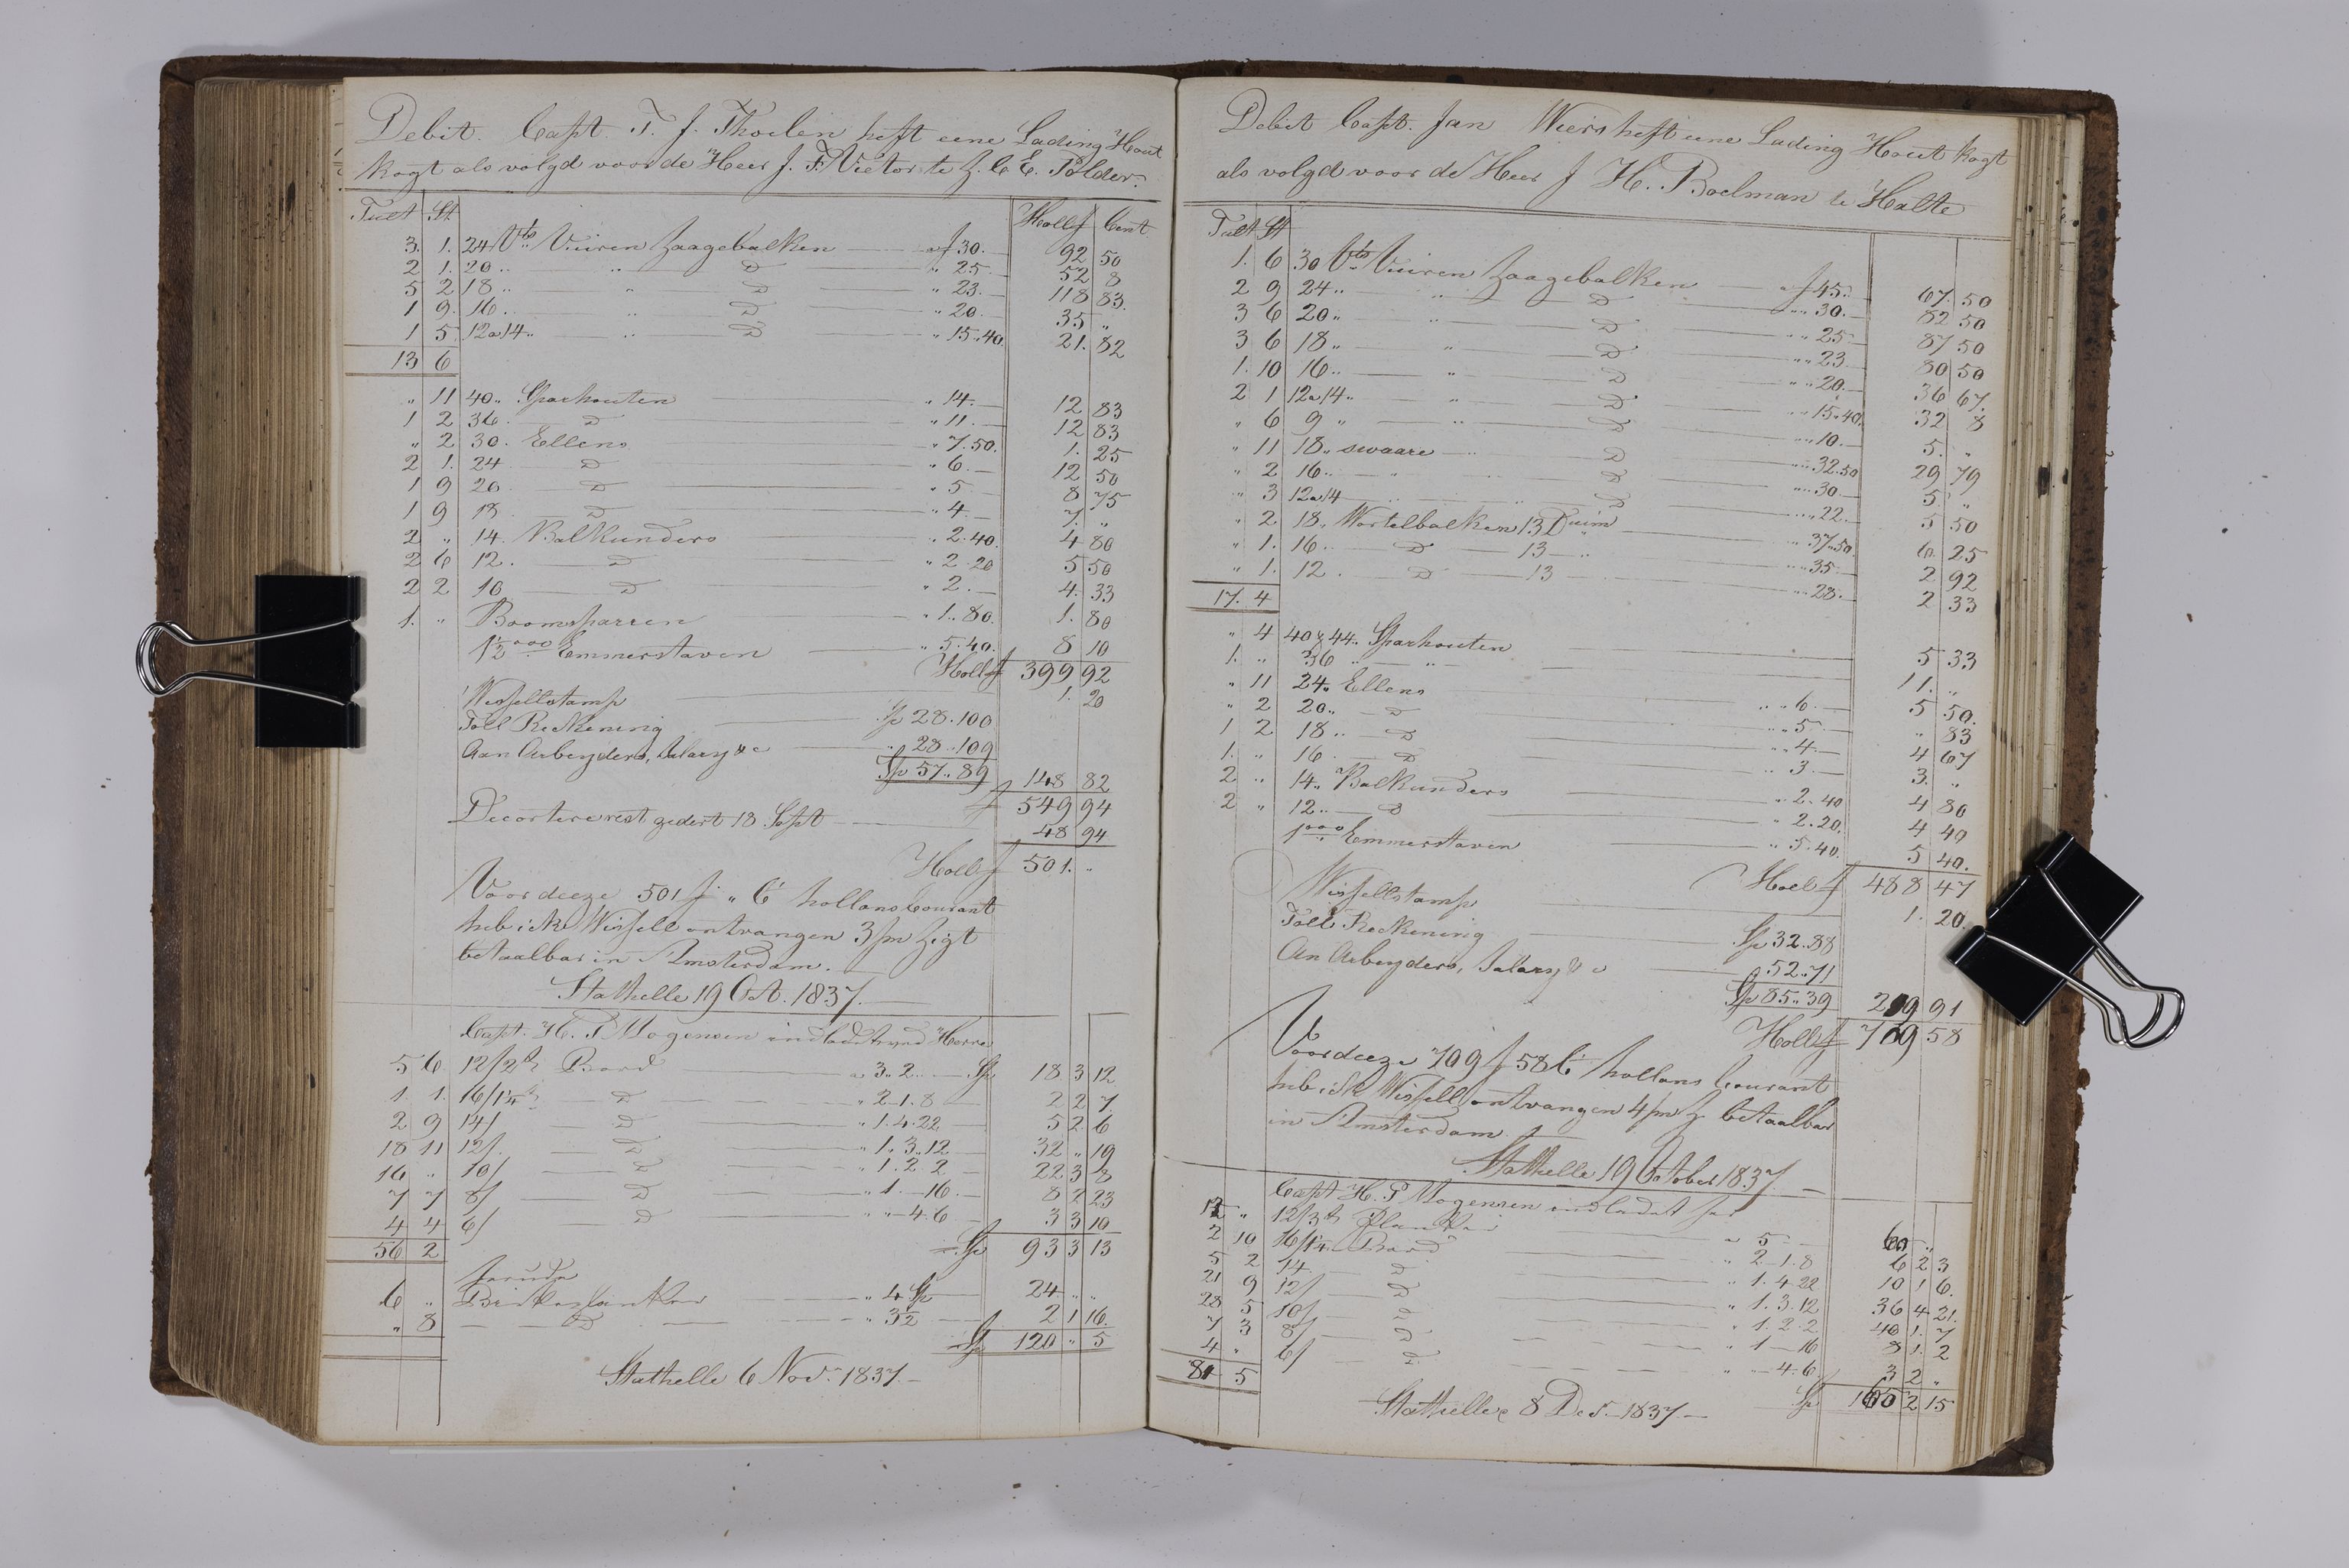 Debit. Capt. T. J. Thoelen heft eene Lading Hout
kogt als volgd voor de Heer J. F. Vietor te Z. C E. Polder.
Tult St Holl f Cent
3. 1. 24 Vts Vuiren Zaagebalken a f 30.— 92 50
2 1. 20 .. " D " 25.— 52 8
5 2 18 .. " D " 23.— 118 83.
1 9. 16 .. " D " 20.— 35 "
1 5 12 a 14 .. " D " 15.40. 21. 82
13 6
" 11 40 .. Sparhouten " 14.— 12 83
1 2 36. D " 11.— 12 83
" 2 30. Ellens " 7.50. 1. 25
2 1. 24 D " 6.— 12 50
1 9 20 D " 5— 8 75
1 9 18 D " 4— 7. "
2 " 14. Balkunders " 2.40. 4 80
2 6 12. D " 2.20 5 50
2 2 10 D " 2.— 4. 33
1. " Boomsparren " 1.80. 1. 80
1½ooo Emmerstaven " 5.40. 8 10
Holl f 399 92
Wissellstamp 1. 20
Toll Reckening Sp 28.100
Aan Arbeyders, Salary & c " 28..109
Sp 57..89 148 82
f 549 94
Decortere rest 18 Sept 48 94
Holl f 501. "
Voor deeze 501 f " C hollans Courant
heb ick Wissell ontvangen 3/m Zigt
betaalbar in Amsterdam.
Stathelle 19 Oct. 1837.
Capt. H. P. Mogensen
5 6. 12/2 Bord a 3.. 2 — Sp 18 3 12
1. 1. 16/1¼ D " 2-1.8 — 2 2 7.
2 9 14/ D " 1.4.22 — 5 2 6
18 11 12/. D " 1.3.12 — 32 " 19
16 " 10/ D " 1.2.2 — 22 3 8
7 7 8/ D " 1.—16.— 8 2 23
4 4 6/ D " "—4.6 — 3 3 10
56 2 Sp 93 3 13
6 " " 4 Sp 24 " "
" 8 — D " 3½ 2 1 16.
Sp 120 " 5
Stathelle 6 Nov. 1837.—
Debit Capt. Jan Wiers heft eene Lading Hout kogt
als volgd voor de Heer J H. Boelman te Halte
Tult St
1. 6 30 Vts Vuiren Zaagebalken a f 45.— 67. 50
2 9 24 .. " D " 30.— 82 50
3 6 20 .. " D " 25— 87 50
3 6 18 .. " D " 23 80 50
1. 10 16 .. " D " 20.— 36 67.
2 1 12 a 14 .. " D " 15.40. 32 8
" 6 9 " " D " 10.— 5. "
" 11 18 .. swaare D " 32.50 29 79
" 2 16 .. " D " 30— 5. "
" 3 12 a 14 .. D " 22.— 5 50
" 2 18. Wortelbalken 13 Duim " 37.50. 6. 25
" 1. 16 .. D — 13 — " " 35— 2 92
" 1. 12 . D — 13 — " 28.— 2 33
17. 4
" 4 40 & 44 .. Sparhouten 5 33
1. " 36 .. — " — 11. "
" 11 24 .. Ellens " 6.— 5 50.
" 2 20 .. D " 5— " 83
1 2 18 .. D " 4— 4 67
1. " 16 . D " 3.— 3. "
2 " 14 .. Balkunders " 2.40 4 80
2 " 12 .. — D " 2.20. 4 40
1ooo Emmerstaven " 5.40. 5 40.
Holl f 488 47
Wissellstamp 1. 20.
Toll Reckening Sp 32..88
An Arbeyders, Salary & c 52..71
Sp 85..39 219 91
Holl f 709 58
Voor deeze 709 f 58 C hollans Courant
heb ick Wissell ontvangen 4/m Z. betaalbar
in Amsterdam
Stathelle 19 October 1837.—
Capt H. P. Mogensen indladet
12 " 12/3 Planker a 5 — 60 " "
2 10 16/1¼ Bord " 2-1.8 6 2 3
5 2 14 D " 1.4.22 10 1 6.
21 9 12/ D " 1.3.12 36 4 21.
28 5 10/ D " 1.2.2 40 1. 7
7 3 8/ D " 1—16 8 1. 2
4 " 6/ D " —4.6 3 2 "
81 5 Sp 165 2 15
Stathelle 8 Dec. 1837—